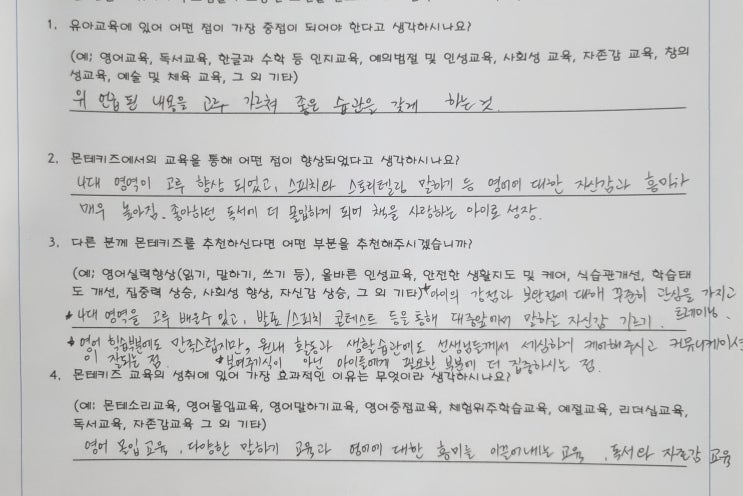 1. 유아교육에 있어 어떤 점이 가장 중점이 되어야 한다고 생각하시나요?
(예; 영어교육, 독서교육, 한글과 수학 등 인지교육, 예의범절 및 인성교육, 사회성 교육, 자존감 교육, 창의
성교육, 예술 및 체육 교육, 그 외 기타)
위 언급된 내용을 고루 가르쳐 좋은 습관을 갖게 하는 것.
2. 몬테키즈에서의 교육을 통해 어떤 점이 향상되었다고 생각하시나요?
4대 영역이 고루 향상 되었고, 스피치와 스토리텔링 말하기 등 영어에 대한 자신감과 흥미가
매우 높아짐. 좋아하던 독서에 더 몰입하게 되며 책을 사랑하는 아이로 성장.
3. 다른 분께 몬테키즈를 추천하신다면 어떤 부분을 추천해주시겠습니까?
(예; 영어실력향상(읽기, 말하기, 쓰기 등), 올바른 인성교육, 안전한 생활지도 및 케어, 식습관개선, 학습태
도 개선, 집중력 상승, 사회성 향상, 자신감 상승, 그 외 기타) *아이의 강점과 보완점에 대해 꾸준히 관심을 가지고
트레이닝.
*4대 영역을 고루 배울수 있고, 발표/스피치 콘테스트 등을 통해 대중앞에서 말하는 자신감 기르기.
*영어 학습부분에도 만족스럽지만, 원내 활동과 생활습관에도 선생님들께서 세심하게 케어해주시고 커뮤니케이션
이 잘되는 점. *보여주기식이 아닌 아이들에게 필요한 부분에 더 집중하시는 점.
4. 몬테키즈 교육의 성취에 있어 가장 효과적인 이유는 무엇이라 생각하시나요?
(예; 몬테소리교육, 영어몰입교육, 영어말하기교육, 영어중점교육, 체험위주학습교육, 예절교육, 리더십교육,
독서교육, 자존감교육 그 외 기타)
영어 몰입 교육, 다양한 말하기 교육과 영어에 대한 흥미를 이끌어내는 교육, 독서와 자존감 교육